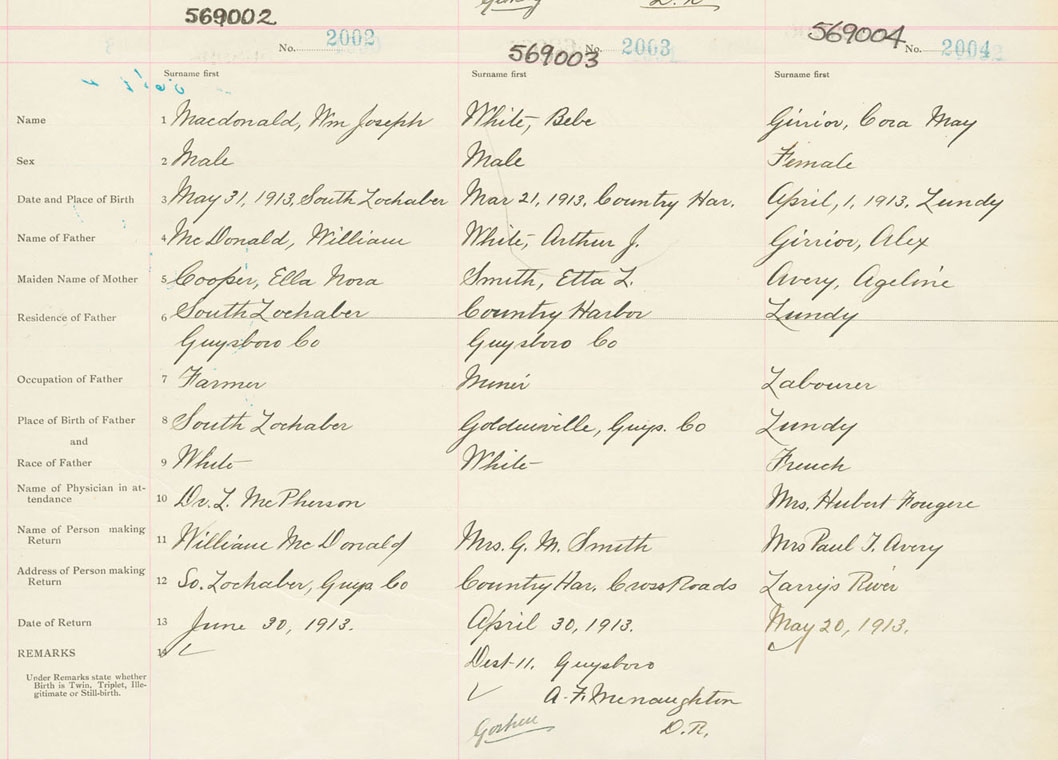 D.R
569002
No. 2002
569003
No. 2003
569004
No. 2004
Surname first
Surname first
Surname first
Name 1 Macdonald, Wm Joseph White, Bebe Girrior, Cora May
Sex 2 Male Male Female
Date and Place of Birth 3 May 31, 1913, South Lochaber Mar 21, 1913, Country Har. April, 1, 1913, Lundy
Name of Father 4 McDonald, William White, Arthur J. Girrior, Alex
Maiden Name of Mother 5 Cooper, Ella Nora Smith, Etta L. Avery, Ageline
Residence of Father 6 South Lochaber Country Harbor Lundy
Guysboro Co Guysboro Co
Occupation of Father 7 Farmer Miner Labourer
Place of Birth of Father 8 South Lochaber Goldenville, Guys. Co Lundy
and
Race of Father 9 White White French
Name of Physician in at-
tendance 10 Dr. L. McPherson Mrs. Hubert Fougere
Name of Person making
Return 11 William McDonald Mrs. G. M. Smith Mrs Paul T. Avery
Address of Person making
Return 12 So. Lochaber, Guys. Co Country Har. Cross Roads Larry's River
Date of Return 13 June 30, 1913. April 30, 1913. May 20, 1913.
REMARKS 14 Dist-11. Guysboro
Under Remarks state whether
Birth is Twin, Triplet, Ille-
gitimate or Still-birth.
A. F. McNaughton
Goshen D.R.